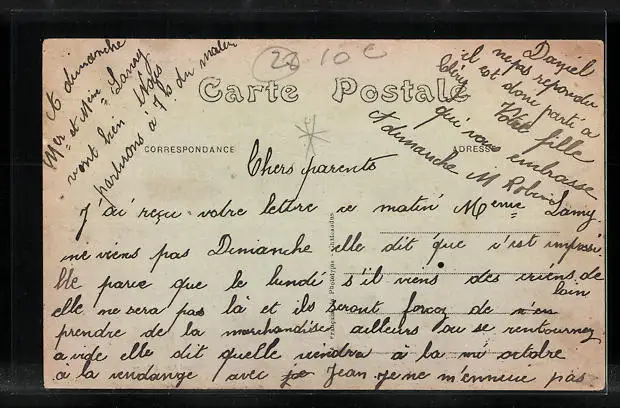 A dimanche
Mr et Mme Lamy
vont bien Nous
partirons à 7h du matin
28 10c
Daniel
il n'e pas repondu
est donc parti a
Votre fille
qui vous embrasse
A dimanche M Robin
Carte Postale
CORRESPONDANCE
ADRESSE
Chers parents
J'ai reçu votre lettre ce matin Meme Lamy
ne viens pas Dimanche elle dit que c'est impossi
ble parce que le lundi s'il viens des criens de
loin
elle ne sera pas là et ils seront forcez de n'en
prendre de la marchandise ailleurs ou se rentournez
a vide elle dit quelle viendra à la mi octobre
à la vendange avec Jean je ne m'ennuie pas